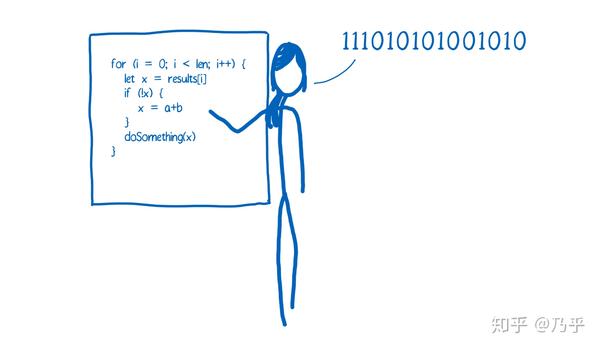 for (i = 0; i < len; i++) {
let x = results[i]
if (!x) {
x = a+b
}
doSomething(x)
}
111010101001010
知乎 @乃乎